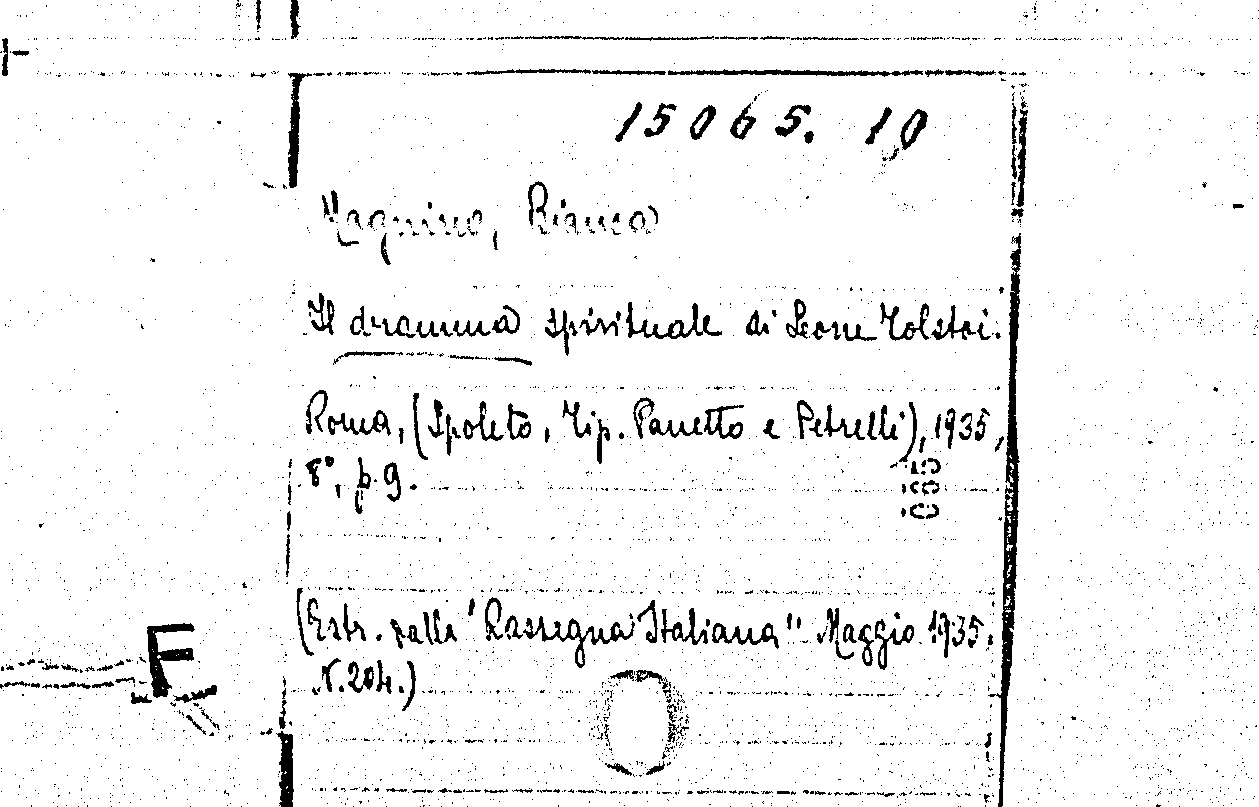 15065. 10
Magnino, Bianca
Il dramma spirituale di Leone Tolstoi.
Roma, (Spoleto, Tip. Panetto e Petrelli), 1935,
8°, p. 9.
(Estr. dalla "Rassegna Italiana" Maggio 1935.
N. 204.)
F